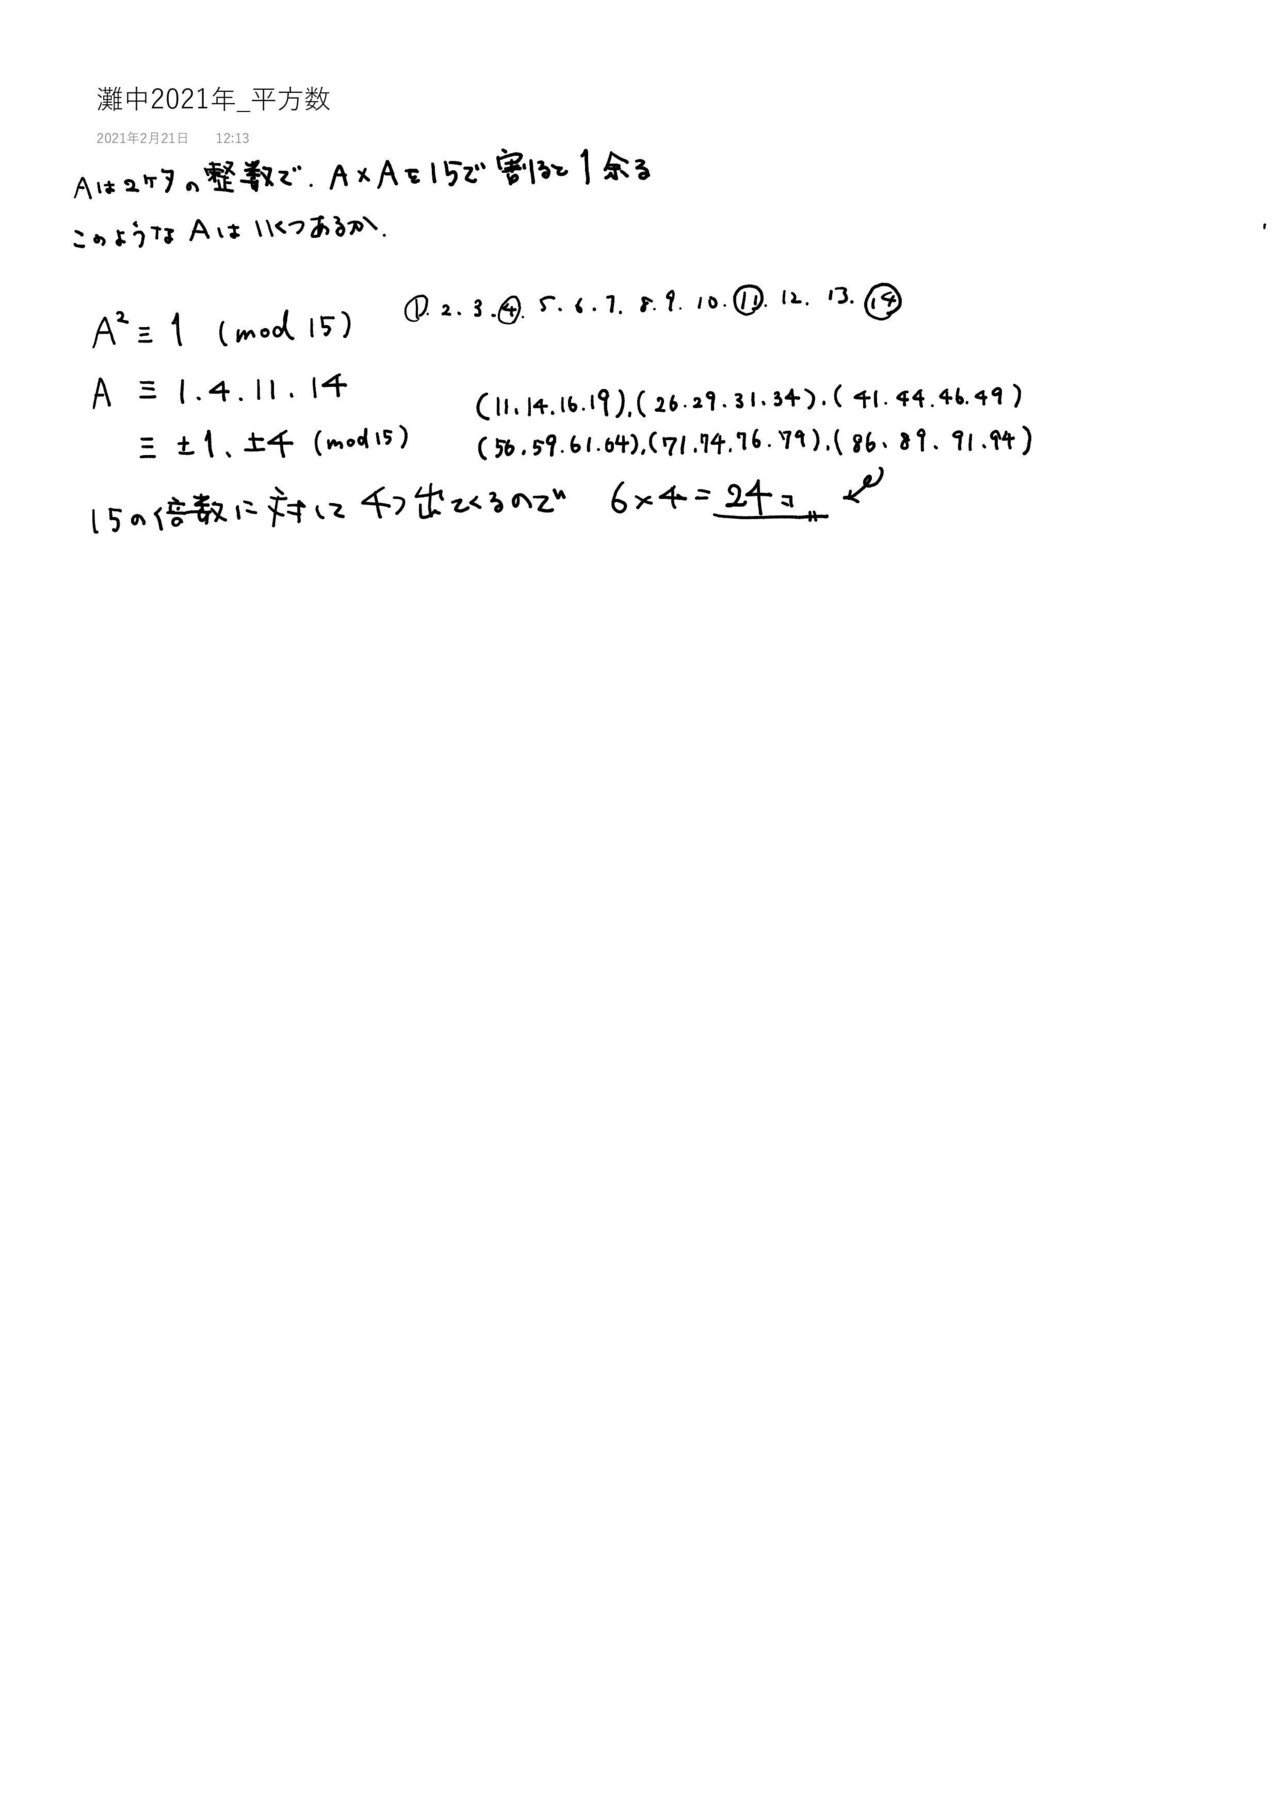 灘中2021年_平方数
2021年2月21日 12:13
Aは2ケタの整数で. A×Aを15で割ると1余る
このようなAはいくつあるか.
A²≡1 (mod 15)
①.2.3.④.5.6.7.8.9.10.⑪.12.13.⑭
A≡1.4.11.14
≡±1、±4 (mod 15)
(11.14.16.19).(26.29.31.34).(41.44.46.49)
(56.59.61.64).(71.74.76.79).(86.89.91.94)
15の倍数に対して4つ出てくるので 6×4=24コ